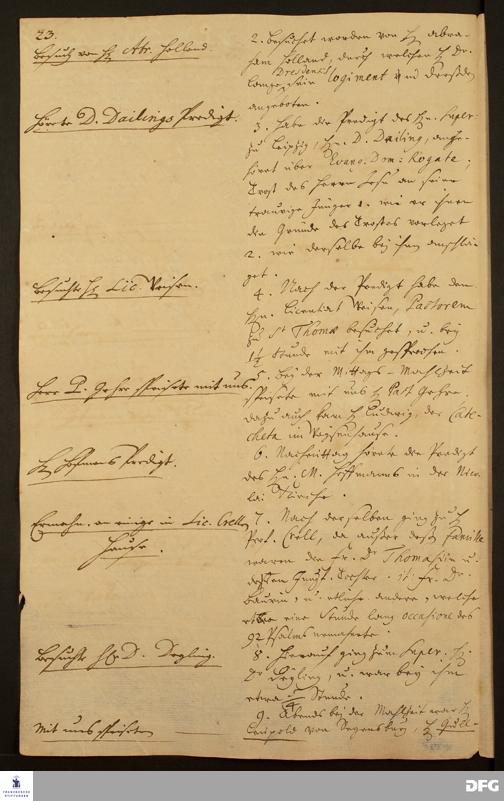 23.
Besuch von H. Abr. Holland.
2. besuchet worden von H. Abra-
ham Holland, durch welchen H. Dr.
sein Logiment in Dresden
Dresdens
angeboten.
Hörete D. Dailings Predigt.
3. Habe die Predigt des Hn. Super.
zu Leipzig, Hn. D. Dailing, ange-
höret über Evang. Dom: Rogate;
Trost des Herrn Jesu an seine
traurige Jünger 1. wie er ihnen
den Grunde des Trostes vorleget
2. wie derselbe bey ihnen anschlä-
get.
Besuchte H. Lic. Weisen.
4. Nach der Predigt habe den
Hn. Licentiat Weisen, Pastorem
zu St Thomæ besuchet, u. bey
1½ Stunde mit ihm gesprochen.
Herr P. Gehre speisete mit uns.
5. Bey der Mittags-Mahlzeit
speisete mit uns H. Past Gehre,
dazu auch kam H. Ludwig, der Cate-
cheta im Waysenhause.
H. Hofmans Predigt.
6. Nachmittag hörete die Predigt
des Hn. M. Hoffmanns in der Nico-
lai Kirche.
Ermahn. an einige in Lic. Crells
Hause.
7. Nach derselben ging zu H.
Prof. Crell, da ausser dessen Familie
waren die Fr. D. Thomasiin u.
dessen Tochter. it. Fr. Dr.
u. etliche andere, welche
eine Stunde lang occasione des
92 Psalms ermahnete.
Besuchte H. D. Degling.
8. Hierauf ging zum Super. H.
Dr Degling, u. war bey ihm
etwa Stunde.
Mit uns speiseten
9. Abends bey der Mahlzeit war H.
Leupold von Regensburg, H.
FRANCKESCHE
STIFTUNGEN
DFG